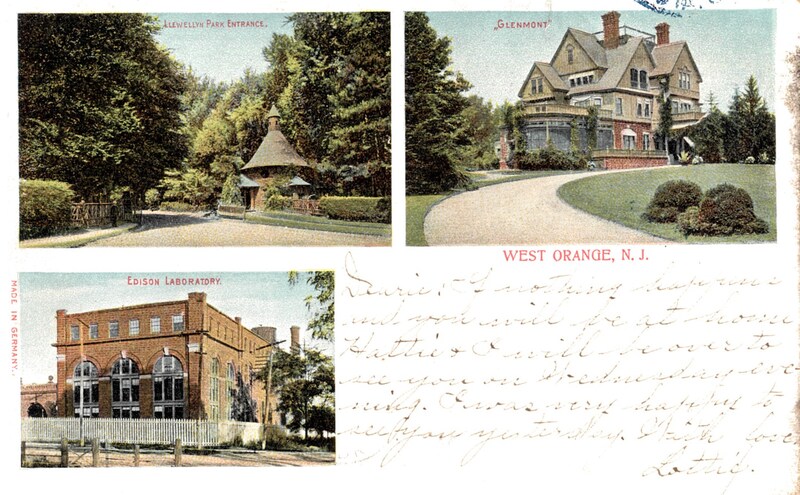 LLEWELLYN PARK ENTRANCE.
„GLENMONT"
WEST ORANGE, N. J.
EDISON LABORATORY.
MADE IN GERMANY.
Dearie: If nothing happens
and you will be at home
Hattie & I will be over to
see you on Wednesday eve
ning. I was very happy to
see you yesterday. With love
Lottie.